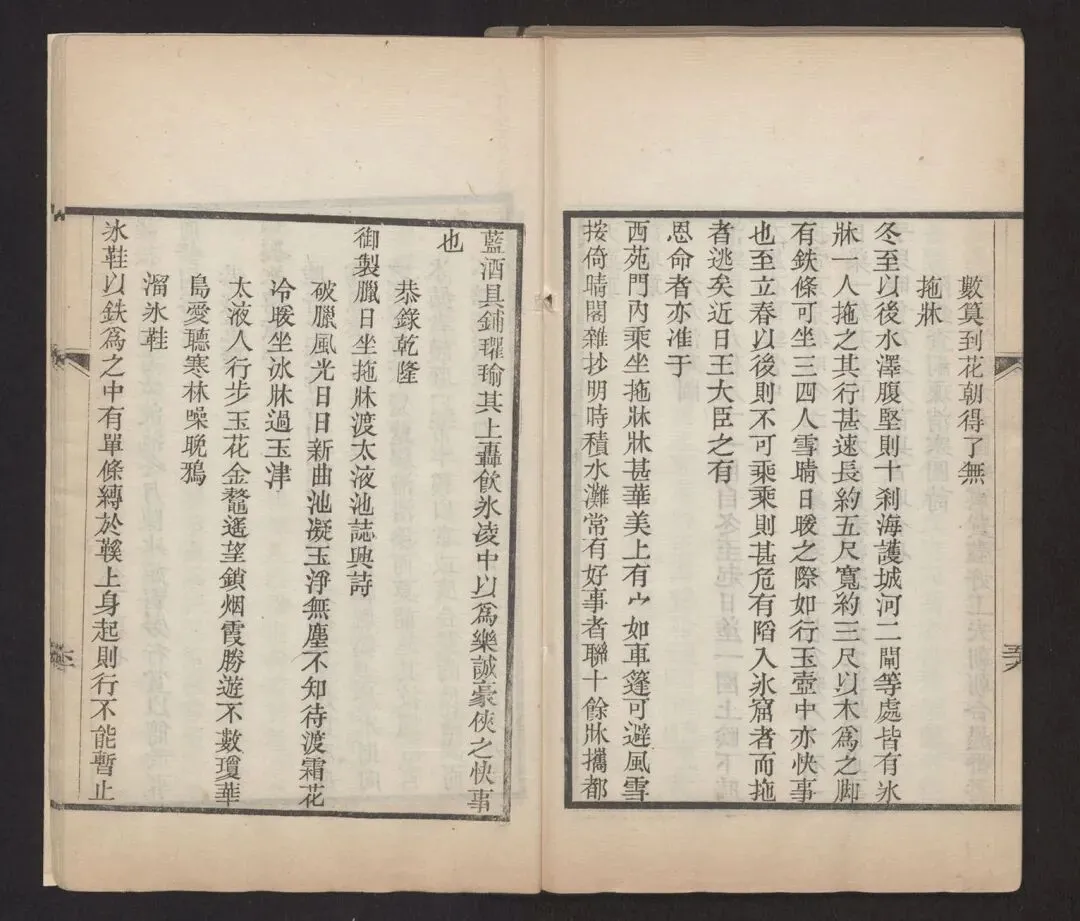 數算到花朝得了無
拖牀
冬至以後水澤腹堅則十刹海護城河二閘等處皆有氷
牀一人拖之其行甚速長約五尺寬約三尺以木爲之脚
有鉄條可坐三四人雪晴日暖之際如行玉壺中亦快事
也至立春以後則不可乘乘則甚危有陷入氷窟者而拖
者逃矣近日王大臣之有
恩命者亦准于
西苑門內乘坐拖牀牀甚華美上有宀如車篷可避風雪
按倚晴閣雜抄明時積水灘常有好事者聯十餘牀攜都
藍酒具鋪氍毹其上轟飲氷凌中以爲樂誠豪俠之快事
也
恭錄乾隆
御製臘日坐拖牀渡太液池誌興詩
破臘風光日日新曲池凝玉淨無塵不知待渡霜花
冷暖坐冰牀過玉津
太液人行步玉花金鼇遙望鎖烟霞勝遊不數瓊華
島愛聽寒林噪晚鴉
溜氷鞋
氷鞋以鉄爲之中有單條縛於鞵上身起則行不能暫止